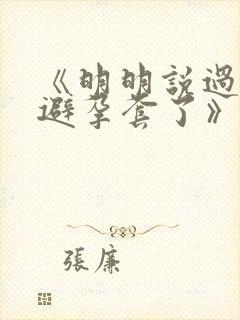 《明明說過
避孕套了》
張廉